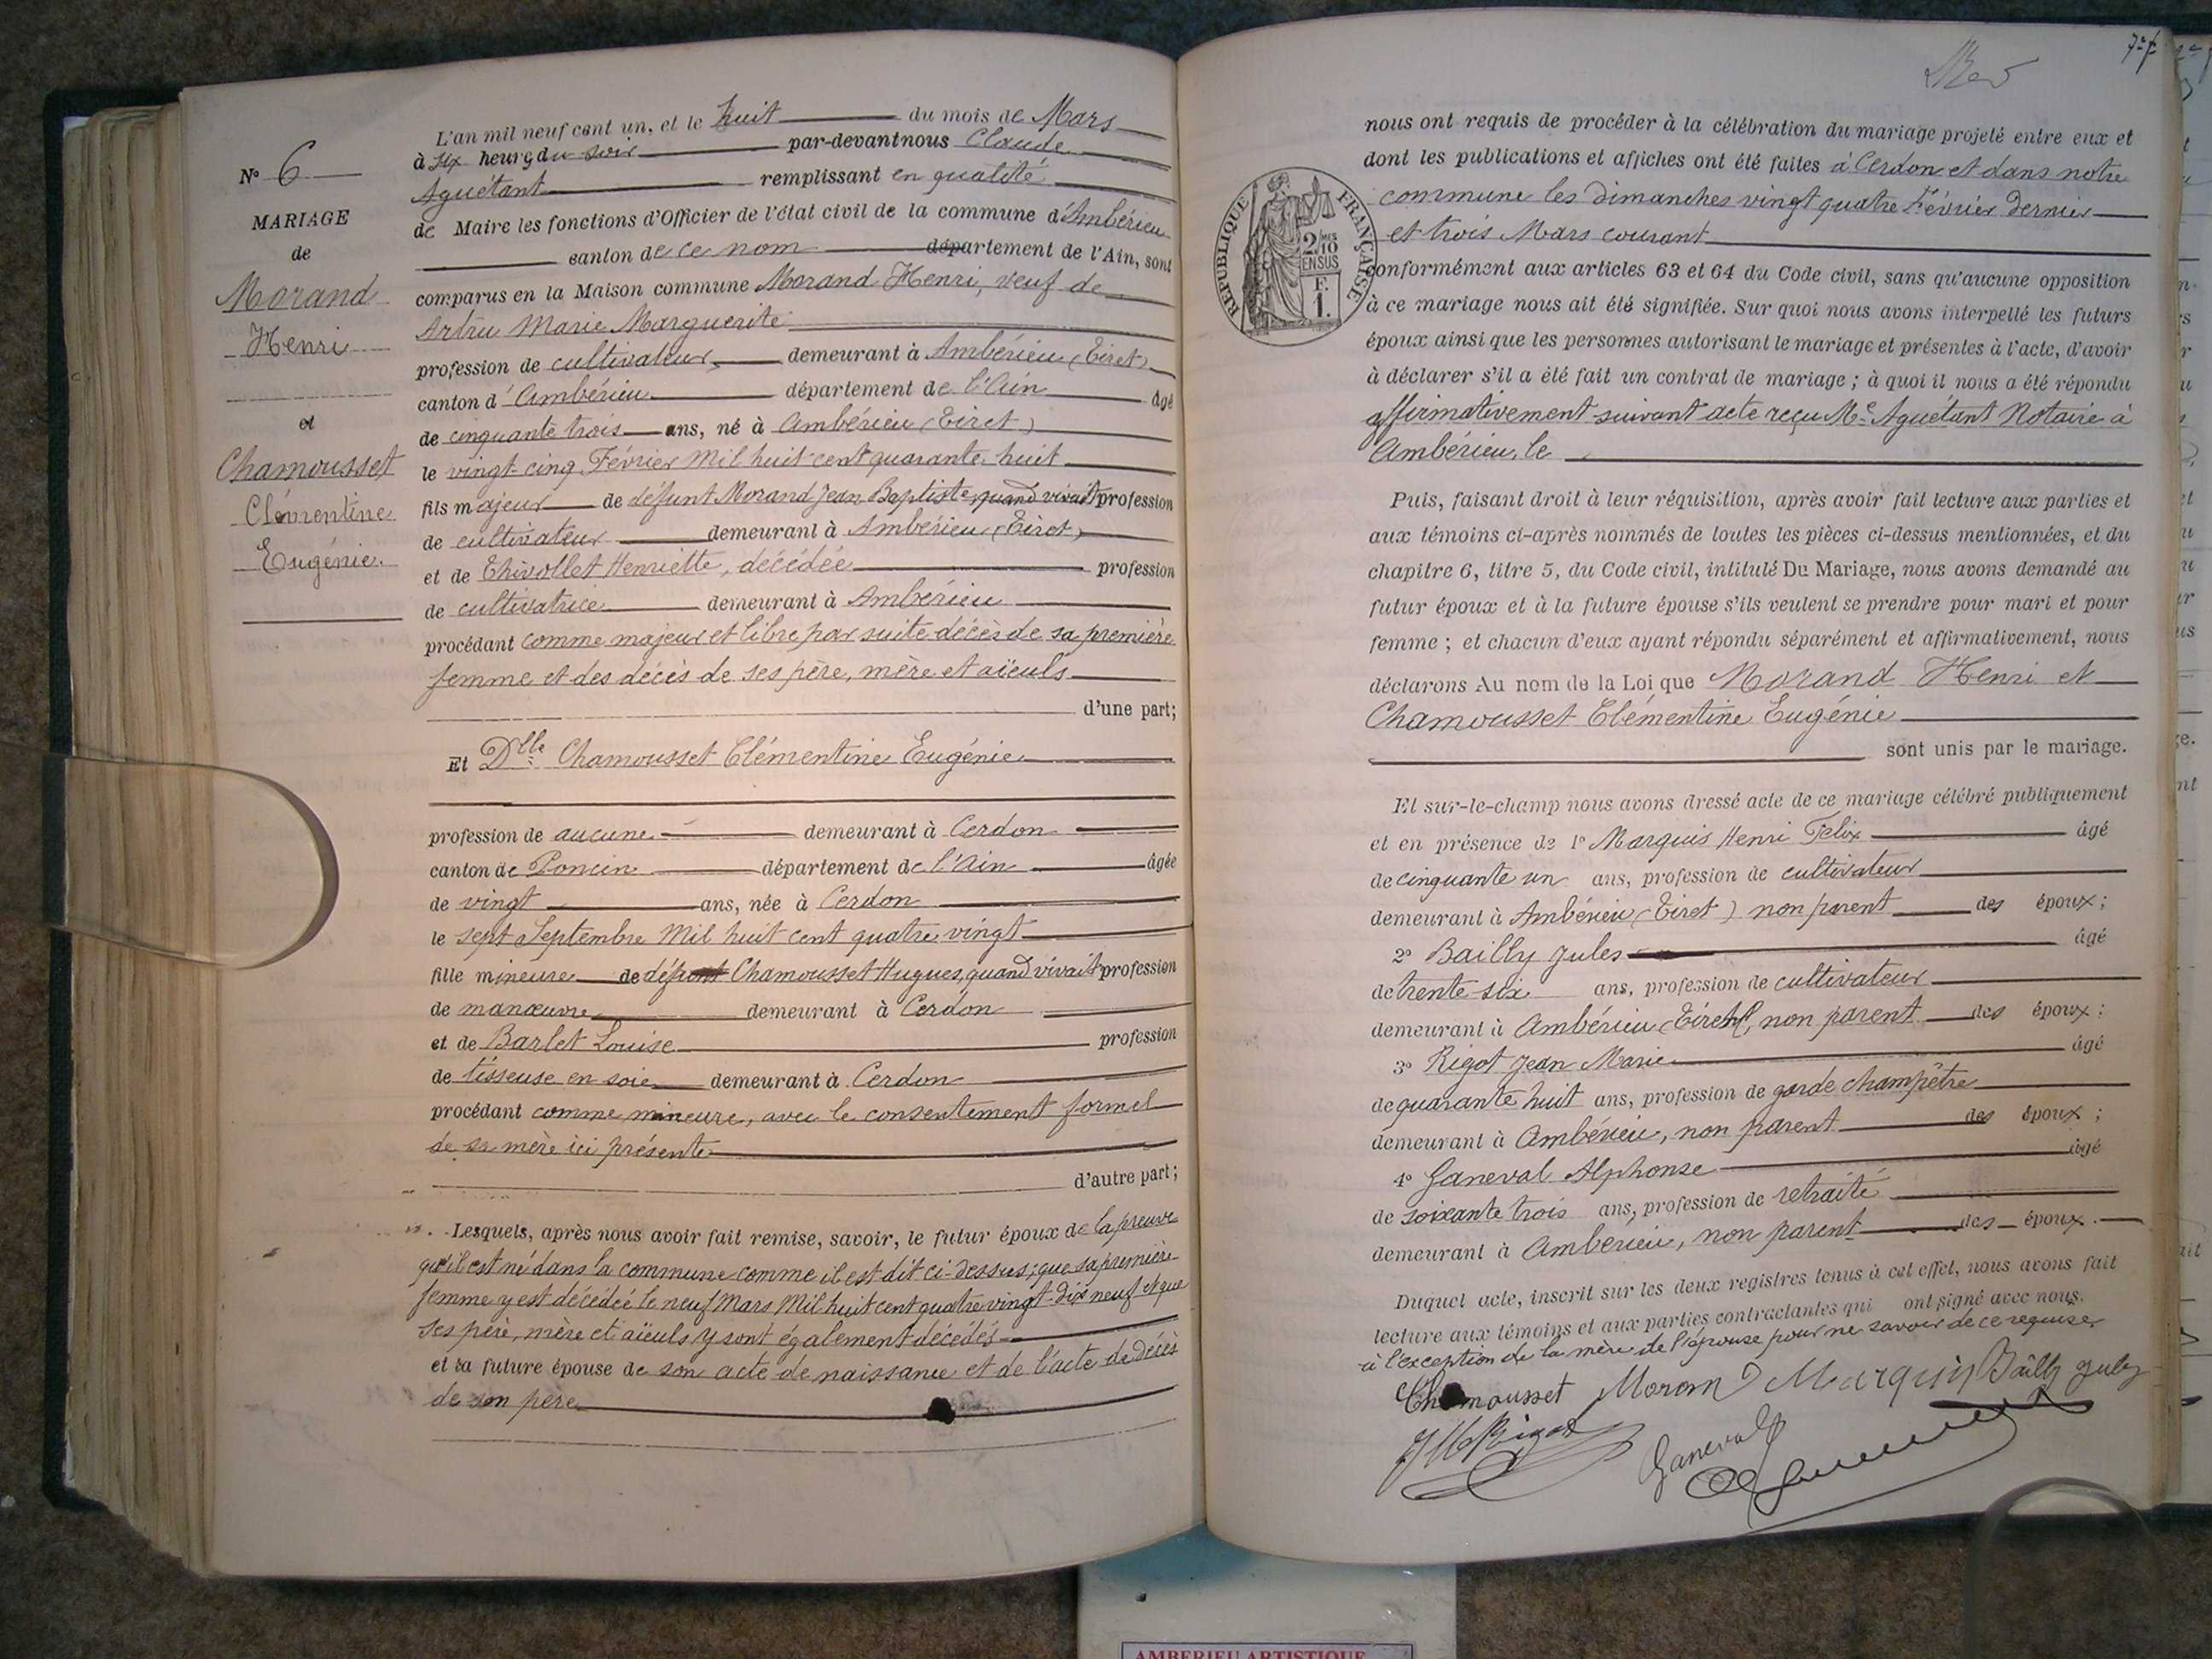 N° 6
MARIAGE
de
Morand
Henri
et
Chamousset
Clémentine
Eugénie.
L'an mil neuf cent un, et le huit du mois de Mars
à six heures du soir par-devant nous Claude
Aguétant remplissant en qualité
de Maire les fonctions d'Officier de l'état civil de la commune d'Ambérieu
canton de ce nom département de l'Ain, sont
comparus en la Maison commune Morand Henri, veuf de
Artru Marie Marguerite
profession de cultivateur, demeurant à Ambérieu (Tiret)
canton d'Ambérieu département de l'Ain âgé
de cinquante trois ans, né à Ambérieu (Tiret)
le vingt cinq Février Mil huit cent quarante huit
fils majeur de défunt Morand Jean Baptiste, quand vivait profession
de cultivateur demeurant à Ambérieu (Tiret)
et de Thivollet Henriette, décédée profession
de cultivatrice demeurant à Ambérieu
procédant comme majeur et libre par suite décès de sa première
femme et des décès de ses père, mère et aïeuls
d'une part;
Et Dlle Chamousset Clémentine Eugénie
profession de aucune demeurant à Cerdon
canton de Poncin département de l'Ain âgée
de vingt ans, née à Cerdon
le sept Septembre Mil huit cent quatre vingt
fille mineure de défunt Chamousset Hugues, quand vivait profession
de manœuvre demeurant à Cerdon
et de Barlet Louise profession
de tisseuse en soie demeurant à Cerdon
procédant comme mineure, avec le consentement formel
de sa mère ici présente
d'autre part;
Lesquels, après nous avoir fait remise, savoir, le futur époux de la preuve
qu'il est né dans la commune comme il est dit ci-dessus; que sa première
femme y est décédée le neuf Mars Mil huit cent quatre vingt-dix neuf et que
ses père, mère et aïeuls y sont également décédés
et la future épouse de son acte de naissance et de l'acte de décès
de son père
nous ont requis de procéder à la célébration du mariage projeté entre eux et
dont les publications et affiches ont été faites à Cerdon et dans notre
commune les dimanches vingt quatre Février dernier
et trois Mars courant
RÉPUBLIQUE FRANÇAISE
2/10
EN SUS
F.
1.
conformément aux articles 63 et 64 du Code civil, sans qu'aucune opposition
à ce mariage nous ait été signifiée. Sur quoi nous avons interpellé les futurs
époux ainsi que les personnes autorisant le mariage et présentes à l'acte, d'avoir
à déclarer s'il a été fait un contrat de mariage ; à quoi il nous a été répondu
affirmativement suivant acte reçu Me Aguétant Notaire à
Ambérieu, le
Puis, faisant droit à leur réquisition, après avoir fait lecture aux parties et
aux témoins ci-après nommés de toutes les pièces ci-dessus mentionnées, et du
chapitre 6, titre 5, du Code civil, intitulé Du Mariage, nous avons demandé au
futur époux et à la future épouse s'ils veulent se prendre pour mari et pour
femme ; et chacun d'eux ayant répondu séparément et affirmativement, nous
déclarons Au nom de la Loi que Morand Henri et
Chamousset Clémentine Eugénie
sont unis par le mariage.
Et sur-le-champ nous avons dressé acte de ce mariage célébré publiquement
et en présence de 1° Marquis Henri Felix âgé
de cinquante un ans, profession de cultivateur
demeurant à Ambérieu (Tiret) non parent des époux ;
2° Bailly Jules âgé
de trente six ans, profession de cultivateur
demeurant à Ambérieu (Tiret), non parent des époux ;
3° Rigot Jean Marie âgé
de quarante huit ans, profession de garde champêtre
demeurant à Ambérieu, non parent des époux ;
4° Ganeval Alphonse âgé
de soixante trois ans, profession de retraité
demeurant à Ambérieu, non parent des époux.
Duquel acte, inscrit sur les deux registres tenus à cet effet, nous avons fait
lecture aux témoins et aux parties contractantes qui ont signé avec nous.
à l'exception de la mère de l'épouse pour ne savoir de ce requise.
Chamousset Morand Marquis Bailly Jules
JM Rigot Ganeval
AMBERIEU ARTISTIQUE